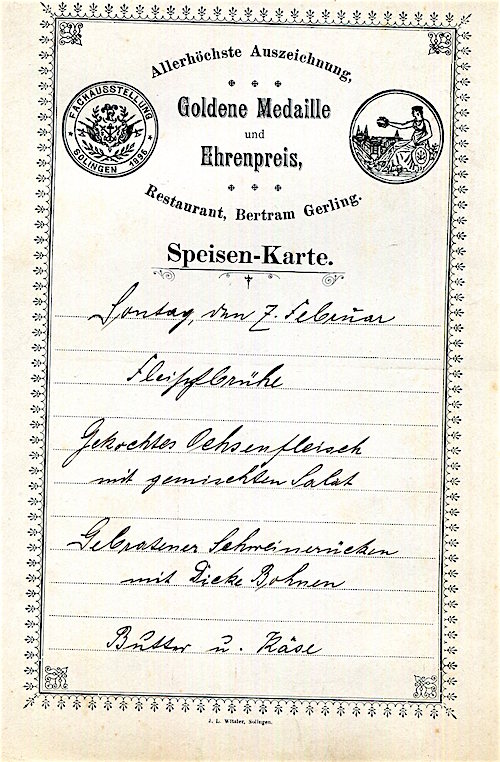 Allerhöchste Auszeichnung,
Goldene Medaille
und
Ehrenpreis,
Restaurant, Bertram Gerling.
FACHAUSSTELLUNG
SOLINGEN 1896
Speisen-Karte.
Sontag, den 7. Februar
Fleischbrühe
Gekochtes Ochsenfleisch
mit gemischten Salat
Gebratener Schweinerücken
mit Dicke Bohnen
Butter u. Käse
J. L. Witzler, Solingen.